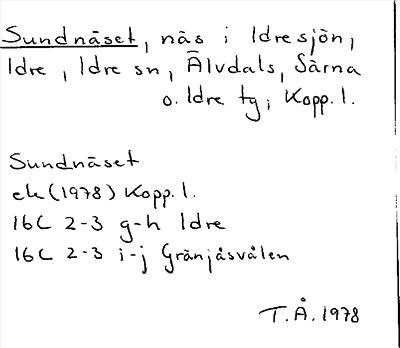 Sundnäset, näs i Idresjön,
Idre, Idre sn, Älvdals, Särna
o. Idre tg, Kopp. l.
Sundnäset
ek (1978) Kopp. l.
16C 2-3 g-h Idre
16C 2-3 i-j Gränjåsvålen
T.Å. 1978